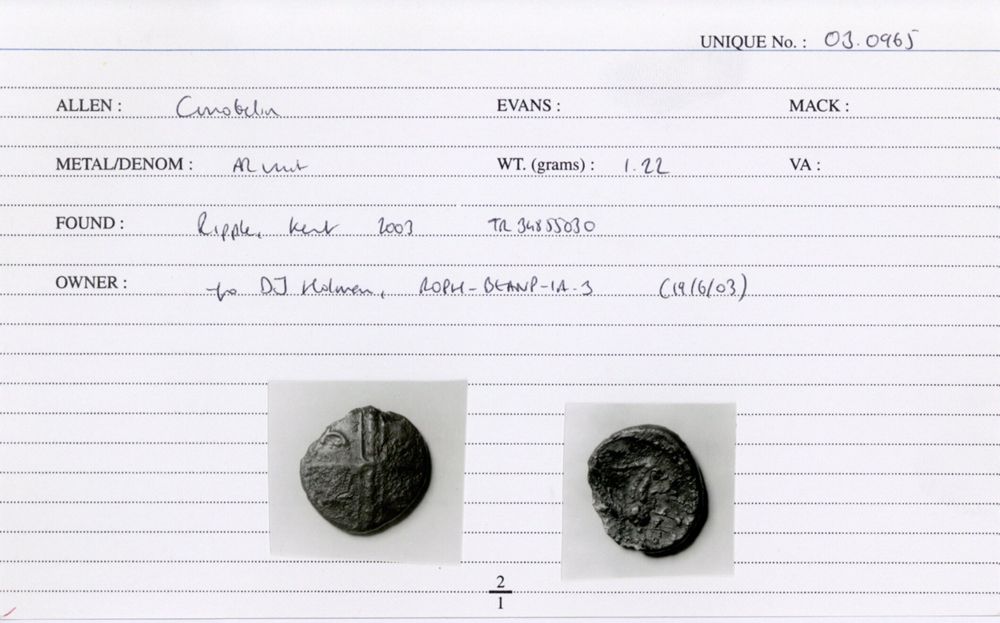 UNIQUE No. : 03.0965
ALLEN : Cunobelin EVANS : MACK :
METAL/DENOM : AR unit WT. (grams) : 1.22 VA :
FOUND : Ripple, Kent 2003 TR 34855030
OWNER : DJ Holman, (19/6/03)
2
1